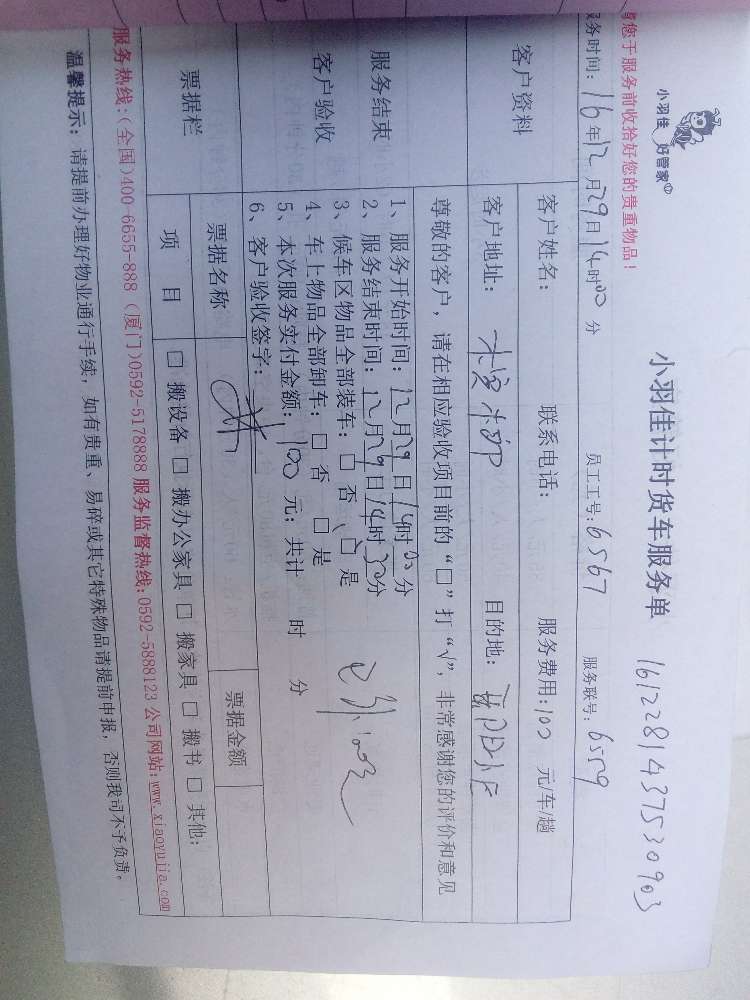 小羽佳 好管家
小羽佳计时货车服务单
1612281437530903
您于服务前收拾好您的贵重物品！
务时间：16年12月29日14时00分 员工工号：6567 服务联号：6559
客户资料
客户姓名： 联系电话： 服务费用：100 元/车/趟
客户地址： 目的地：
尊敬的客户，请在相应验收项目前的“□”打“√”，非常感谢您的评价和意见
服务结束
客户验收
1、服务开始时间：12月29日14时00分
2、服务结束时间：12月29日14时30分
3、候车区物品全部装车：□ 否 □ 是
4、车上物品全部卸车：□ 否 □ 是
5、本次服务实付金额：100 元；共计 时 分
6、客户验收签字：
票据栏
票据名称 票据金额
项 目 □ 搬设备 □ 搬办公家具 □ 搬家具 □ 搬书 □ 其他：
服务热线：(全国)400-6655-888 (厦门)0592-5178888 服务监督热线：0592-5888123 公司网站：www.xiaoyujia.com
温馨提示：请提前办理好物业通行手续，如有贵重、易碎或其它特殊物品请提前申报，否则我司不予负责。